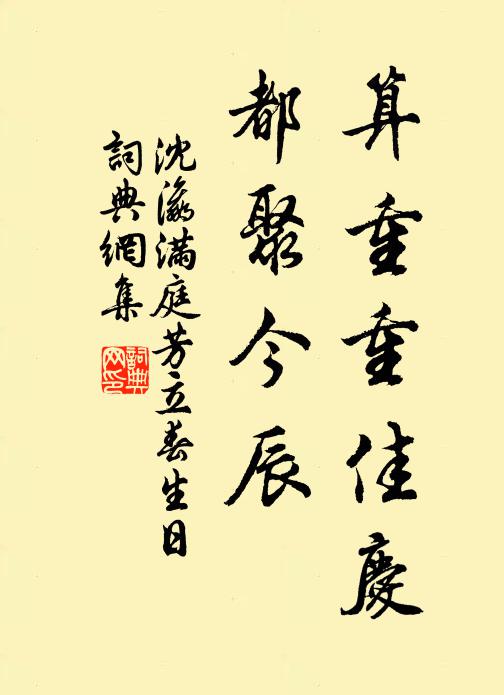 算重重佳慶
都聚今辰
沈瀛滿庭芳立春生日
詞典網集
詞典网印